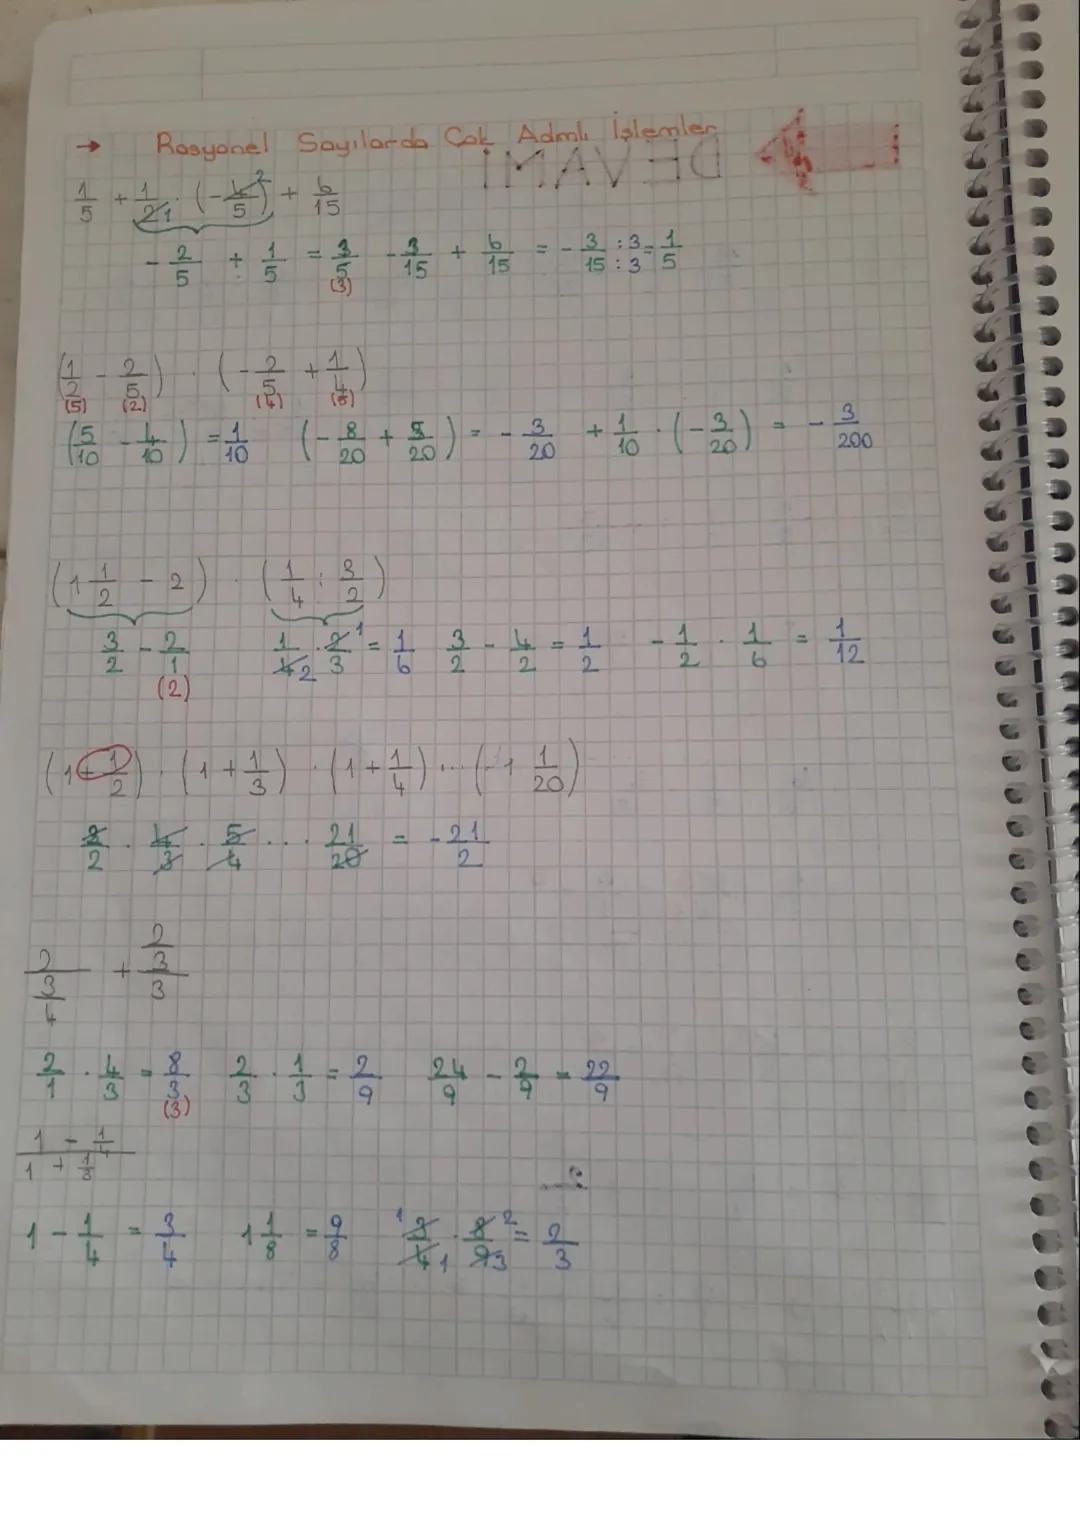 → Rasyonel Sayılarda Çok Adımlı İşlemler
DEVAMI
1/5 + 1/2 1 · (-4/5)² + 6/15
-2/5 + 1/5 = 3/5 (3) -3/15 + 6/15 = -3/15 :3/:3 = 1/5
(1/2 - 2/5) · (-2/5 + 1/4)
(5) (2) (4) (5)
(5/10 - 4/10) = 1/10 (-8/20 + 5/20) = -3/20 + 1/10 · (-3/20) = -3/200
(1 1/2 - 2) · (1/4 : 3/2)
3/2 - 2/1 1/4 2 · 2/3 1 = 1/6 3/2 - 4/2 = 1/2 -1/2 · 1/6 = 1/12
(2)
(1 + 1/2) · (1 + 1/3) · (1 + 1/4) ... (-1 1/20)
3/2 · 4/3 · 5/4 ... 21/20 = -21/2
2/(3/4) + (2/3)/3
2/1 · 4/3 = 8/3 2/3 · 1/3 = 2/9 24/9 - 2/9 = 22/9
(3)
(1 - 1/4)/(1 + 1/8)
1 - 1/4 = 3/4 1 1/8 = 9/8 1 3/4 1 · 8/9 2 3 = 2/3